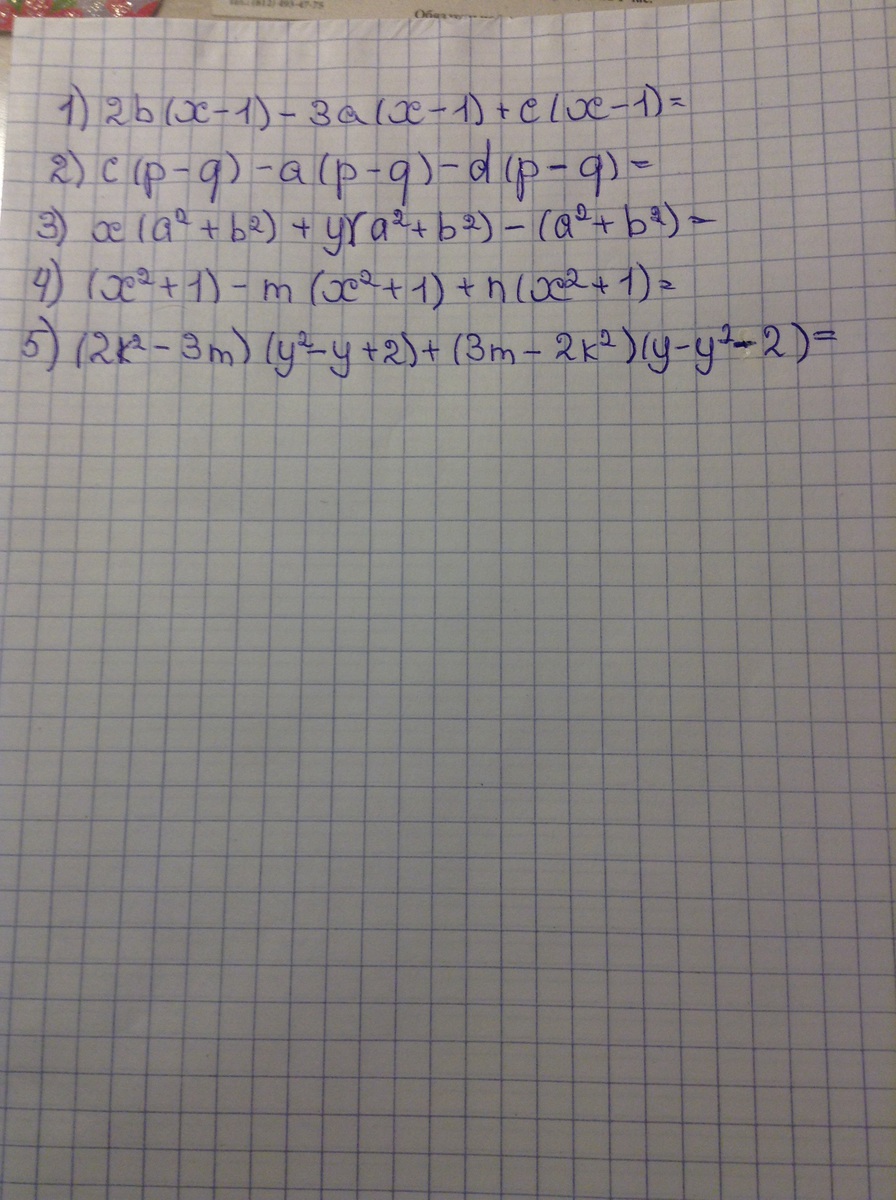 1) 2b(x-1)-3a(x-1)+c(x-1)=
2) c(p-q)-a(p-q)-d(p-q)=
3) x(a²+b²)+y(a²+b²)-(a²+b²)=
4) (x²+1)-m(x²+1)+n(x²+1)=
5) (2k²-3m)(y²-y+2)+(3m-2k²)(y-y²-2)=